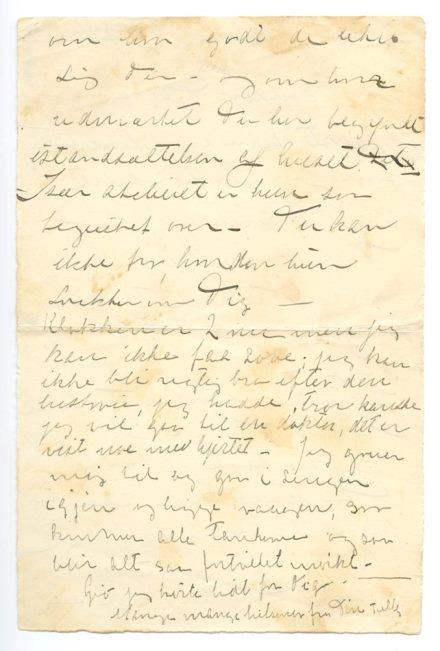 om hun godt de
Dig der. – og om hvor
udmærket Du har begyndt
istandsættelsen af huset.
Især atelieret er hun saa
begeistret over – Du kan
ikke tro, hvordan hun
snakker om Dig –
Klokken er 2 nu men jeg
kan ikke faa sove; jeg kan
ikke bli rigtig bra efter den
historie, jeg hadde, tror kanske
jeg vil gaa til en doktor, det er
vist noe med hjertet – Jeg gruer
mig til og gaa i sengen
igjen og ligge vaagen, saa
kommer alle tankerne og saa
blir alt saa fortvilet mørkt. –
Giv jeg hørte lidt fra Dig.
Mange mange hilsener fra Din Tulla